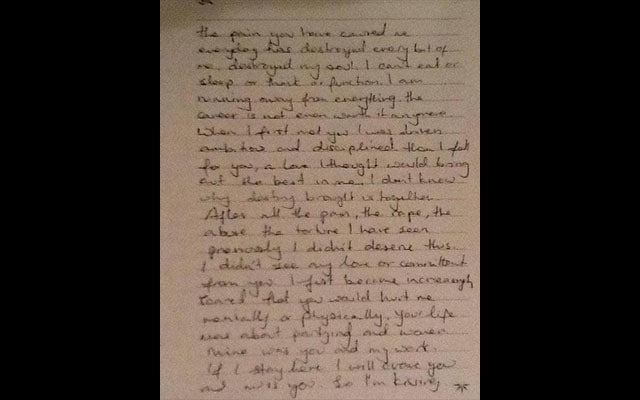 the pain you have caused me
everyday has destroyed every bit of
me, destroyed my soul. I can't eat or
sleep or think or function. I am
running away from everything. the
career is not even worth it anymore.
When I first met you I was driven
ambitious and disciplined. then I fell
for you, a love I thought would bring
out the best in me. I don't know
why destiny brought us together.
After all the pain, the rape, the
abuse the torture I have seen
previously I didn't deserve this.
I didn't see any love or commitment
from you. I just became increasingly
scared that you would hurt me
mentally or physically. Your life
was about partying and women
mine was you and my work.
If I stay here I will crave you
and miss you. So I'm kissing